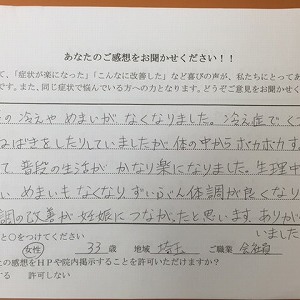 あなたのご感想をお聞かせください！！
て、「症状が楽になった」「こんなに改善した」など喜びの声が、私たちにとってあ
です。また、同じ症状で悩んでいる方への力となります。どうぞご意見をお聞かせく
の冷えや めまいが なくなりました。冷え症で くつ
ねばきをしたりしていましたが 体の中から ポカポカす
て 普段の生活が かなり楽になりました。生理中
い めまいも なくなり ずいぶん体調が良くなり
調の改善が 妊娠に つながったと思います。ありがと
いました
と○をつけてください
女性 33 歳 地域 埼玉 ご職業 会社員
の感想をＨＰや院内掲示することを許可いただけますか？
する 許可しない